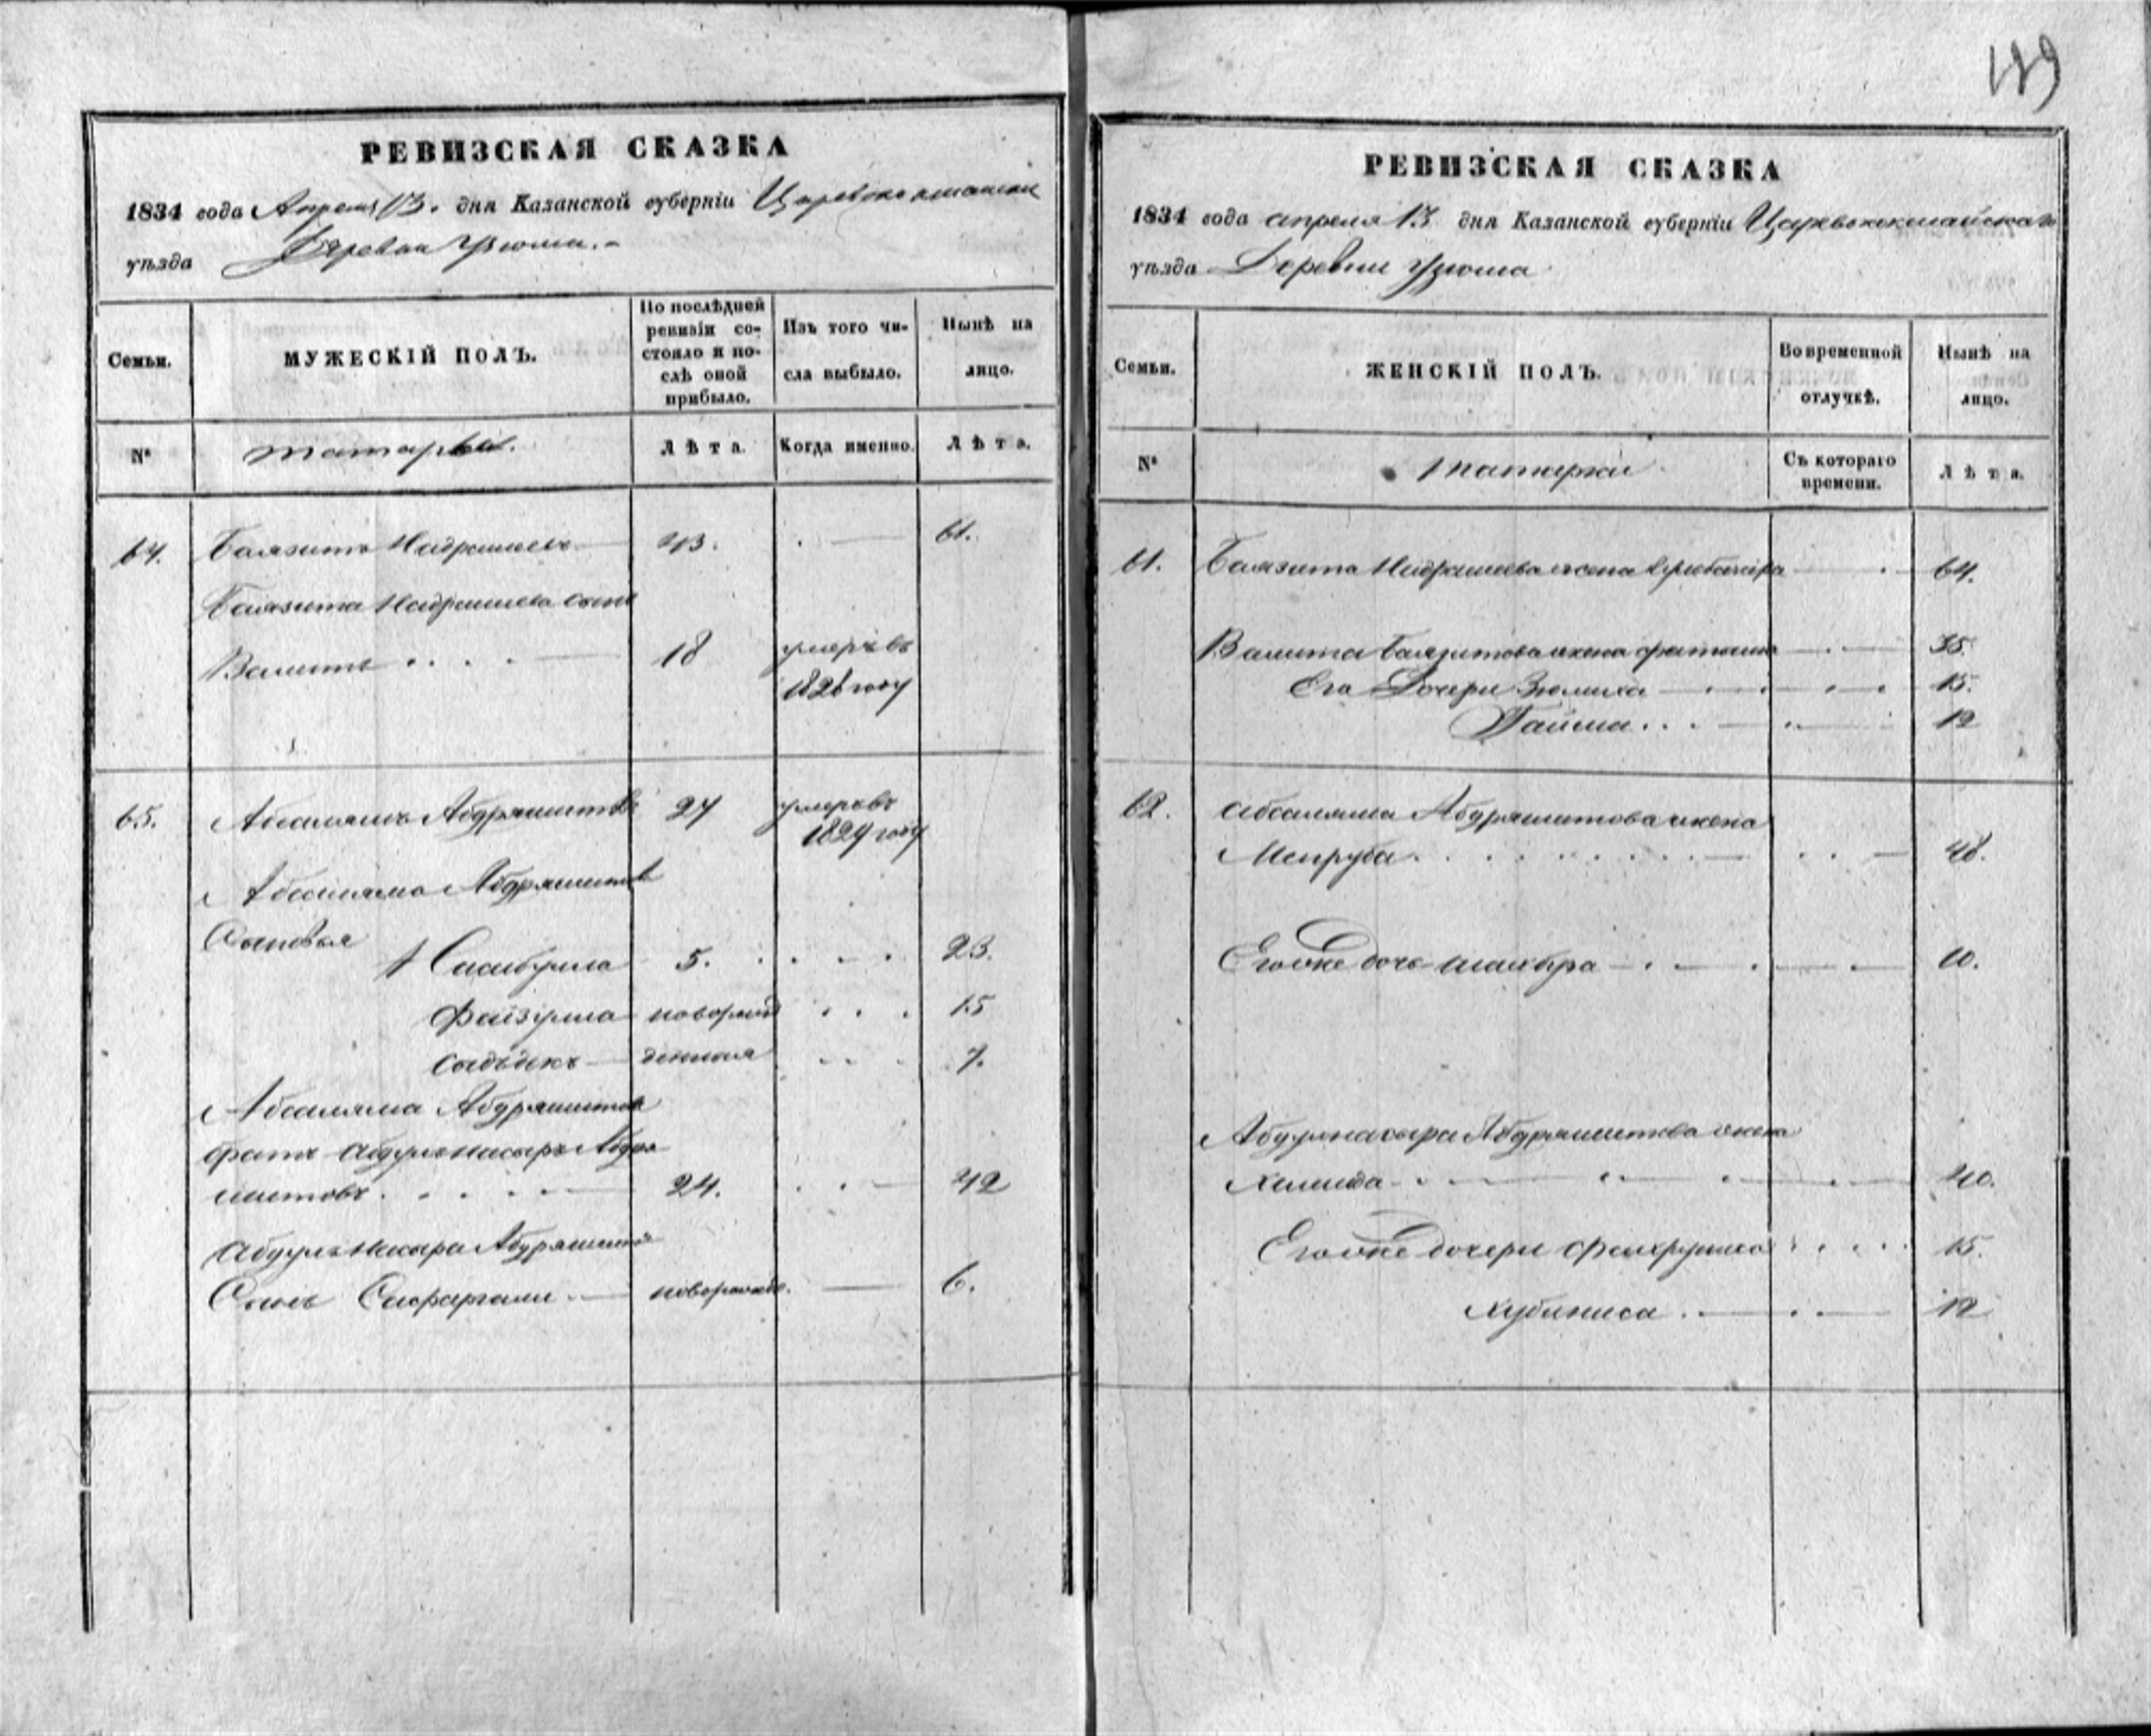 189
РЕВИЗСКАЯ СКАЗКА
1834 года Апреля 13. дня Казанской губерніи
уѣзда Деревни Узюма.
Семьи.
МУЖЕСКІЙ ПОЛЪ.
По послѣдней ревизіи состояло и послѣ оной прибыло.
Изъ того числа выбыло.
Нынѣ на лицо.
№
татары.
Лѣта.
Когда именно.
Лѣта.
64. Баязитъ 43. 61.
Баязита сынъ
Валитъ 18 умеръ въ
1826 году
65. Абсалямъ Абдряшитовъ 27 умеръ въ
1829 году
Абсаляма Абдряшитова
Сыновья
1 5. 23.
Файзулла новорож 15
Садыкъ денныя 7.
Абсаляма Абдряшитова
братъ Абдулънасыръ Абдря
шитовъ 24. 42
Абдулънасыра Абдряшитова
Сынъ Сафаргали новорожде. 6.
РЕВИЗСКАЯ СКАЗКА
1834 года апреля 13 дня Казанской губерніи Царевококшайскаго
уѣзда Деревни Узюма
Семьи.
ЖЕНСКІЙ ПОЛЪ.
Во временной отлучкѣ.
Нынѣ на лицо.
№
татарки
Съ котораго времени.
Лѣта.
61. Баязита жена 64.
Валита Баязитова жена 35.
Его Дочери Зюлиха 15.
12
62. Абсаляма Абдряшитова жена
48.
Егоже дочь 10.
Абдулнасыра Абдряшитова жена
40.
Егоже дочери 15.
Хубиниса 12